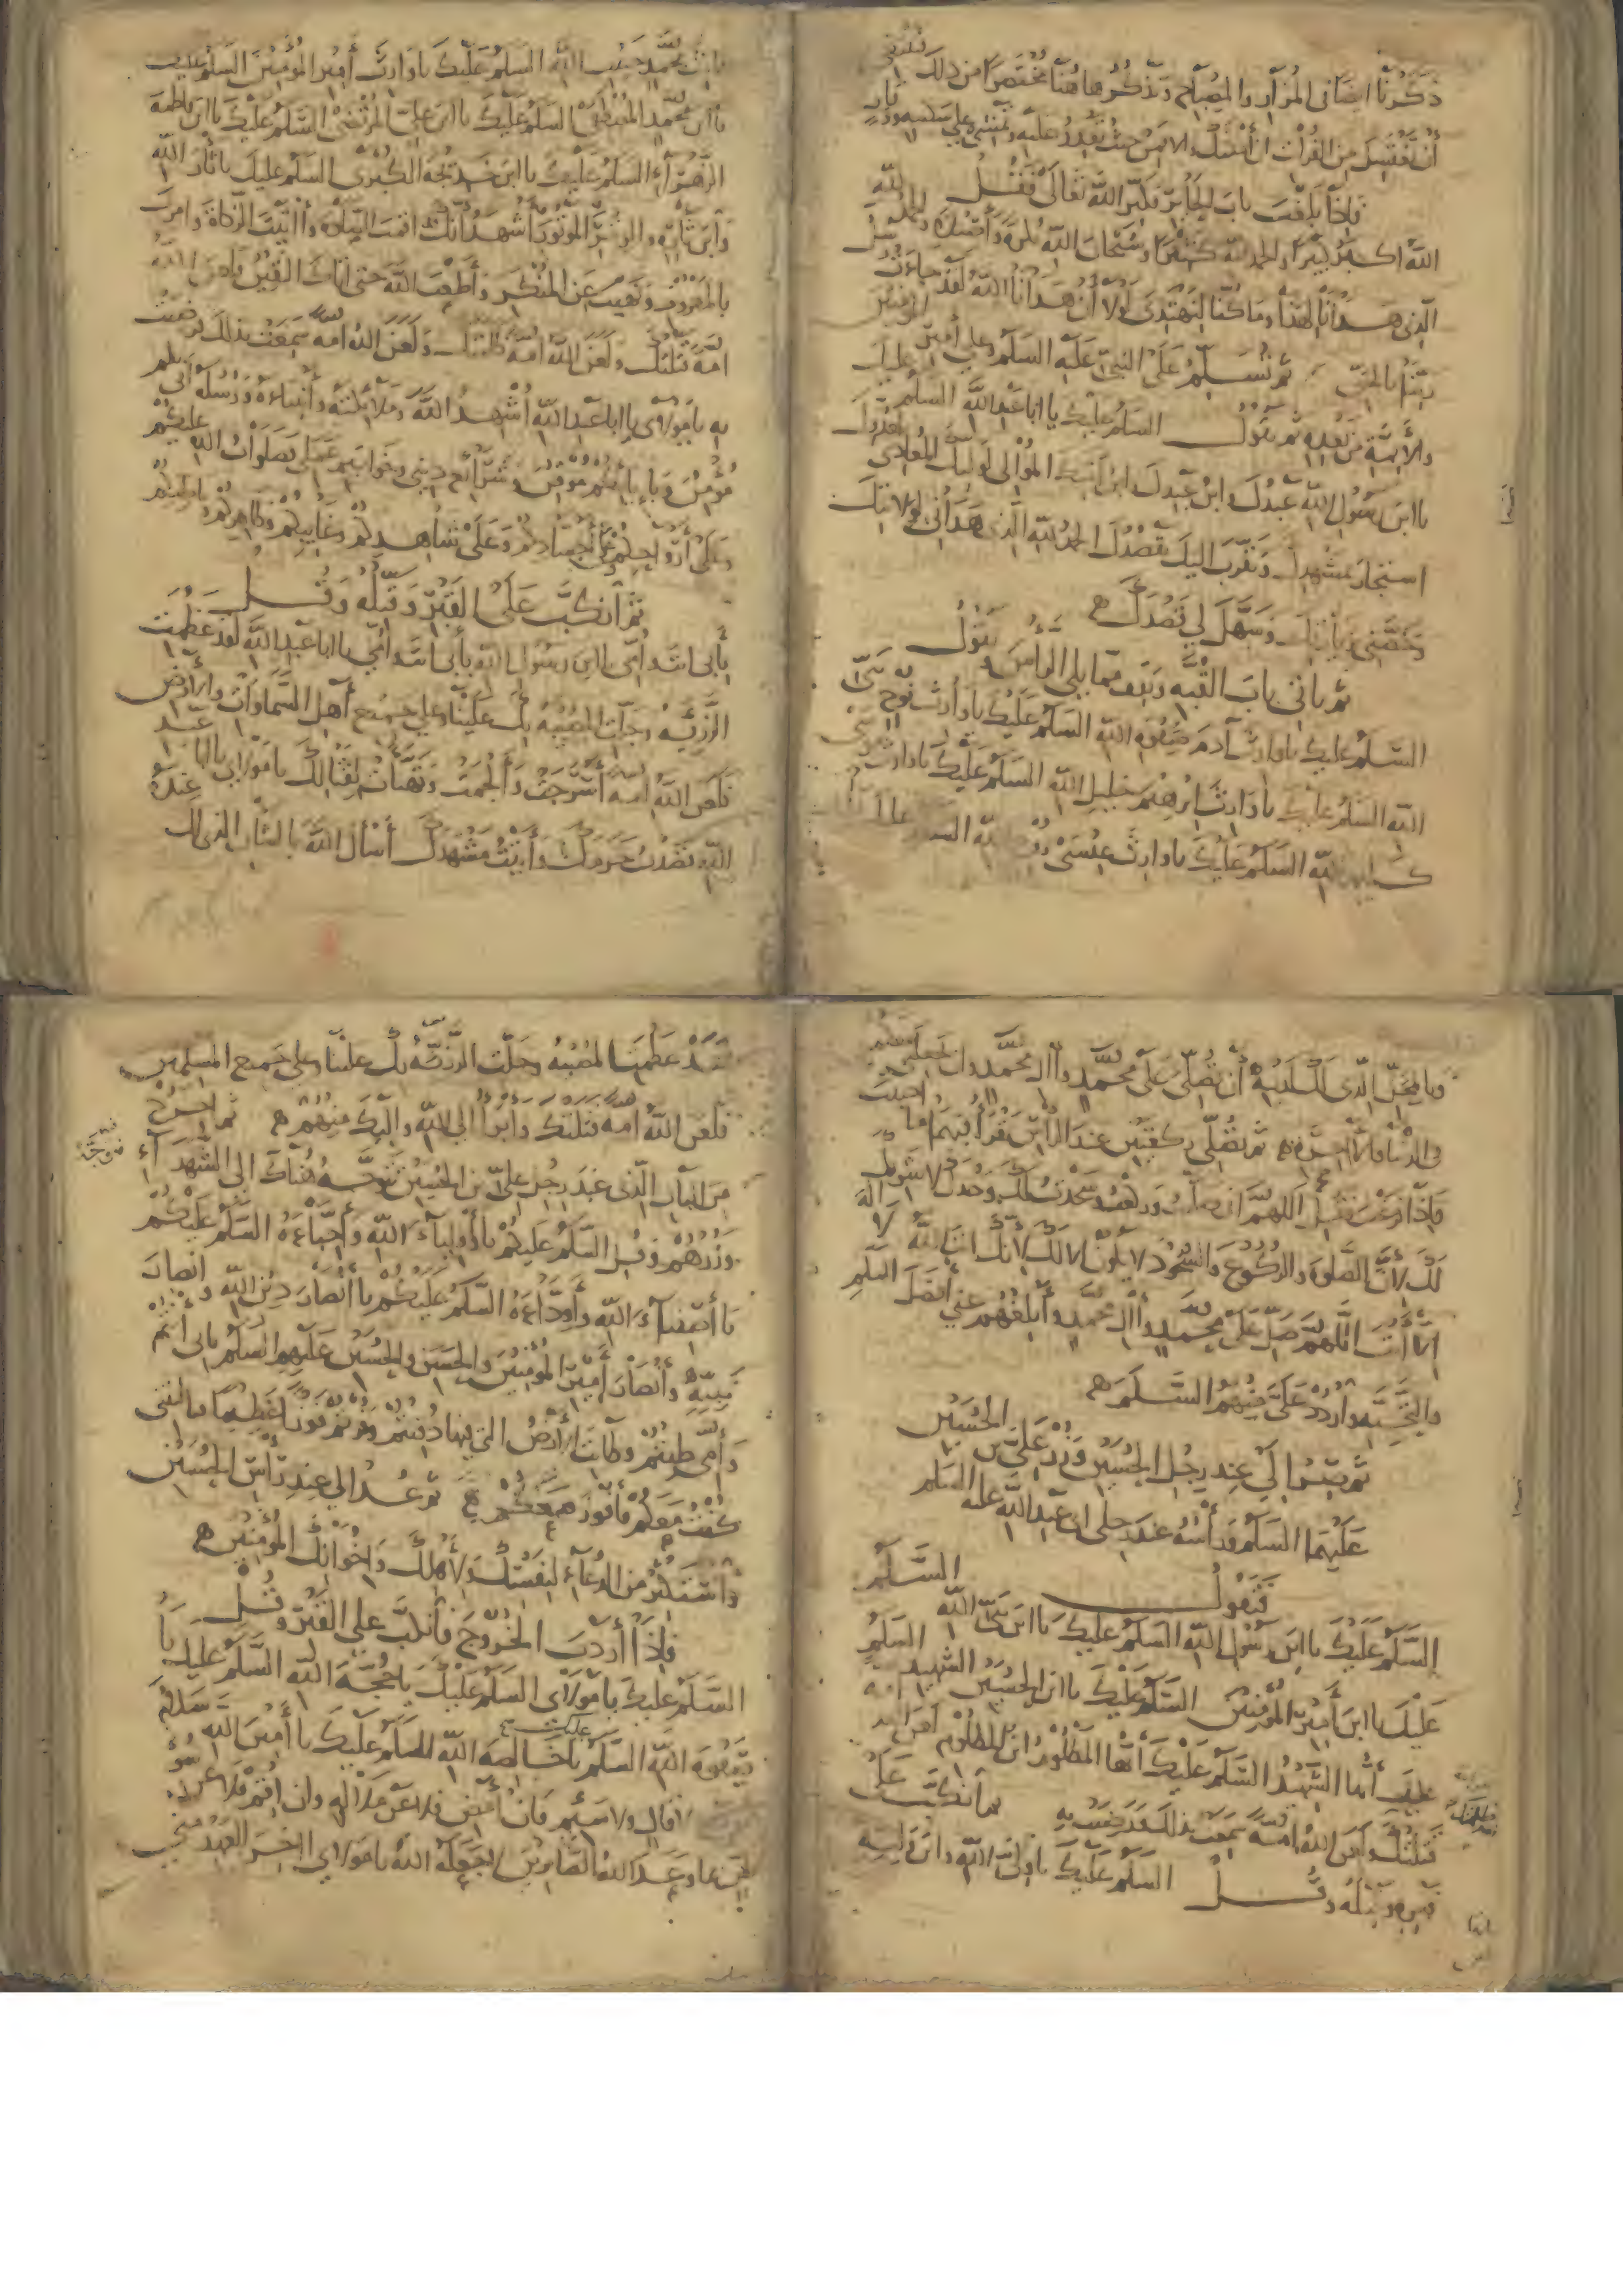 ذكرنا ايضا في المزار والمصباح ونذكرها هنا مختصرا من ذلك
أن تغتسل من الفرات ان أمكنك والا فمن حيث تقدر عليه وتمشي على سكينة ووقار
فاذا بلغت باب الحائر فكبر الله تعالى فقل
الله اكبر كبيرا والحمد لله كثيرا وسبحان الله بكرة وأصيلا والحمد لله
الذي هدانا لهذا وما كنا لنهتدي لولا أن هدانا الله لقد جاءت رسل
ربنا بالحق ثم تسلم على النبي عليه السلم وعلى أمير المؤمنين
والأئمة من بعده ثم تقول السلم عليك يا ابا عبد الله السلم عليك
يا ابن رسول الله عبدك وابن عبدك وابن أمتك الموالي لوليك المعادي لعدوك
استجار بمشهدك وتقرب اليك بقصدك الحمد لله الذي هداني لولايتك
وخصني بزيارتك وسهل لي قصدك
ثم تاتي باب القبة وتقف مما يلي الراس وتقول
السلم عليك يا وارث آدم صفوة الله السلم عليك يا وارث نوح نبي
الله السلم عليك يا وارث ابرهيم خليل الله السلم عليك يا وارث موسى
كليم الله السلم عليك يا وارث عيسى روح الله السلم عليك
يا وارث محمد حبيب الله السلم عليك يا وارث أمير المؤمنين السلم عليك
يا ابن محمد المصطفى السلم عليك يا ابن علي المرتضى السلم عليك يا ابن فاطمة
الزهراء السلم عليك يا ابن خديجة الكبرى السلم عليك يا ثار الله
وابن ثاره والوتر الموتور أشهد أنك اقمت الصلاة وآتيت الزكاة وامرت
بالمعروف ونهيت عن المنكر وأطعت الله حتى اتاك اليقين فلعن الله
امة قتلتك ولعن الله امة ظلمتك ولعن الله امة سمعت بذلك فرضيت
به يا مولاي يا ابا عبد الله أشهد الله وملائكته وأنبياءه ورسله أني بكم
مؤمن وبإيابكم موقن وشرائع ديني وخواتيم عملي فصلوات الله عليكم
وعلى أرواحكم وعلى أجسادكم وعلى شاهدكم وغائبكم وظاهركم وباطنكم
ثم انكب على القبر وقبله وقل
بأبي انت وامي يا ابن رسول الله بأبي انت وامي يا ابا عبد الله لقد عظمت
الرزية وجلت المصيبة بك علينا وعلى جميع أهل السماوات والأرض
فلعن الله امة أسرجت وألجمت وتهيأت لقتالك يا مولاي يا ابا عبد
الله قصدت حرمك وأتيت مشهدك أسأل الله بالشان الذي لك عنده
وبالمحل الذي لك لديه أن تصلي على محمد وآل محمد وان تجعلني معكم
في الدنيا والآخرة ثم تصلي ركعتين عند الرأس تقرأ فيهما ما احببت
فاذا فرغت فقل اللهم اني صليت وركعت وسجدت لك وحدك لا شريك
لك لأن الصلوة والركوع والسجود لا يكون الا لك لأنك انت الله لا اله
الا أنت اللهم صل على محمد وآل محمد وأبلغهم عني أفضل السلم
والتحية واردد علي منهم السلم
ثم تصير الى عند رجل الحسين وزر علي بن الحسين
عليهما السلم ورأسه عند رجلي ابي عبد الله عليه السلم
فتقول السلم
السلم عليك يا ابن رسول الله السلم عليك يا ابن نبي الله
عليك يا ابن أمير المؤمنين السلم عليك يا ابن الحسين الشهيد السلم
عليك أيها الشهيد السلم عليك أيها المظلوم ابن المظلوم لعن الله امة
قتلتك ولعن الله امة سمعت بذلك فرضيت به ثم انكب على
قبره وقبله وقل السلم عليك يا ولي الله وابن وليه
لقد عظمت المصيبة وجلت الرزية بك علينا وعلى جميع المسلمين
فلعن الله امة قتلتك وابرأ الى الله واليك منهم ثم اخرج
من الباب الذي عند رجل علي بن الحسين فتوجه هناك الى الشهداء
وزرهم وقل السلم عليكم يا أولياء الله وأحباءه السلم عليكم
يا أصفياء الله وأوداءه السلم عليكم يا أنصار دين الله وانصار
نبيه وأنصار أمير المؤمنين والحسن والحسين عليهم السلم بابي أنتم
وأمي طبتم وطابت الأرض التي فيها دفنتم وفزتم فوزا عظيما فيا ليتني
كنت معكم فأفوز معكم ثم عد الى عند رأس الحسين
واستكثر من الدعاء لنفسك ولأهلك واخوانك المؤمنين
فاذا أردت الخروج فانكب على القبر وقل
السلم عليك يا مولاي السلم عليك يا حجة الله السلم عليك يا
صفوة الله السلم عليك يا خالصة الله السلم عليك يا أمين الله سلام
قال ولا سئم فان أمض فلا عن ملالة وان اقم فلا عن سوء
ظن بما وعد الله الصابرين لا جعله الله يا مولاي آخر العهد مني